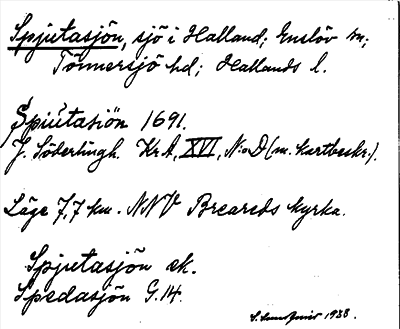 Spjutasjön, sjö i Halland; Enslöv sn;
Tönnersjö hd; Hallands l.
Spiútasiön 1691.
J. Söderlingh. Kr.A, XVI, N:o D (m. kartbeskr.).
Läge 7,7 km. NNV Breareds kyrka.
Spjutasjön ek.
Spedasjön G. 14.
1938.